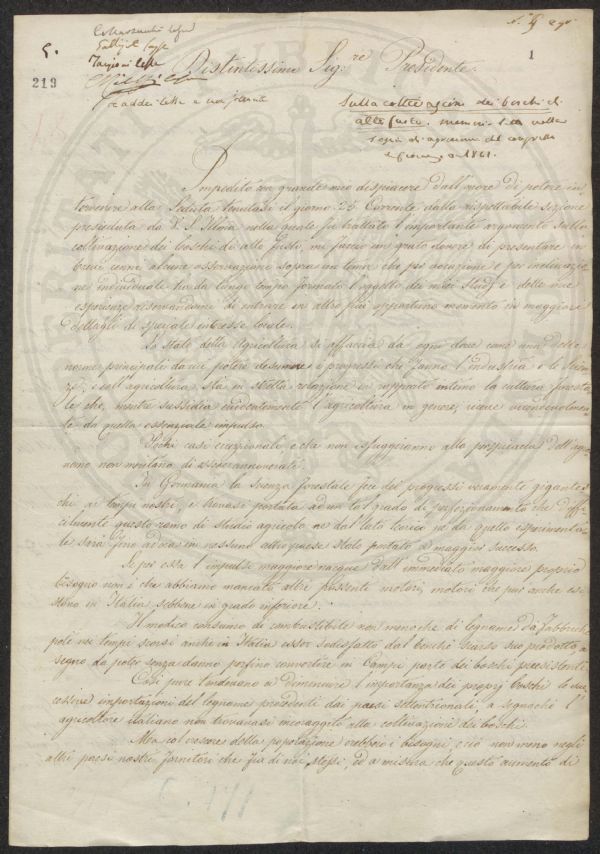 5.
219
1
Distintissimo Sig.re Presidente.
Sulla coltivazione dei boschi di
alto fusto. memoria letta nella
sezione di agronomia del congresso
1841.
Impedito con grande mio dispiacere dall'onore di potere in,
tervenire alla Seduta tenutasi il giorno 25 Corrente dalla rispettabile Sezione
presieduta da V. S. Ill.ma nella quale fu trattato l'importante argomento sulla
coltivazione dei boschi di alto fusto, mi faccio un grato dovere di presentare in
breve cenno alcune osservazioni sopra un tema che per vocazione e per inclinazio
ne individuale ha da lungo tempo formato l'oggetto dei miei Studj e delle mie
esperienze riservandomi di entrare in altro più opportuno momento in maggiore
dettaglio di speciale interesse locale.
Lo stato della Agricoltura si affaccia da ogni dove come una delle
norme principali da cui potere desumere i progressi che fanno l'industria e le Scien
ze; e coll'agricoltura sta in stretta relazione in rapporto intimo la cultura foresta
le che, mentre sussidia l'agricoltura in genere, riceve
le da questa essenziale impulso.
Pochi casi eccezionali e che non isfuggiranno alla perspicacia dell'agro
nomo non montano di essere annoverati.
In Germania la Scienza forestale fece dei progressi veramente gigantes,
chi ai tempi nostri, e trovasi portata ad un tal grado di perfezionamento che diffi
cilmente questo ramo di studio agricolo nè dal lato teorico nè da quello esperimenta
le sarà fino ad ora in nessuno altro paese stato portato a maggiore successo.
Se poi essa l'impulso maggiore nacque dall'immediato maggiore proprio
bisogno non è che abbiano mancato altri possenti motori, motori che pur anche esi
stono in Italia sebbene in grado inferiore.
Il modico consumo di combustibile non meno che di legname da fabbriche
potè nei tempi scorsi anche in Italia esser sodisfatto dal boschi scarso suo prodotto a
segno da potersi senza danno perfino convertire in Campi parte dei boschi preesistenti.
Così pure tendevano a diminuire l'importanza dei proprj boschi le suc
cessive importazioni del legname procedenti dai paesi settentrionali, a segno che l'
agricoltore italiano non trovavasi incoraggito alla coltivazione dei boschi.
Ma col crescere della popolazione crebbero i bisogni, e ciò non meno negli
altri paesi nostri fornitori che fra di noi stessi, ed a misura che questo aumentò di